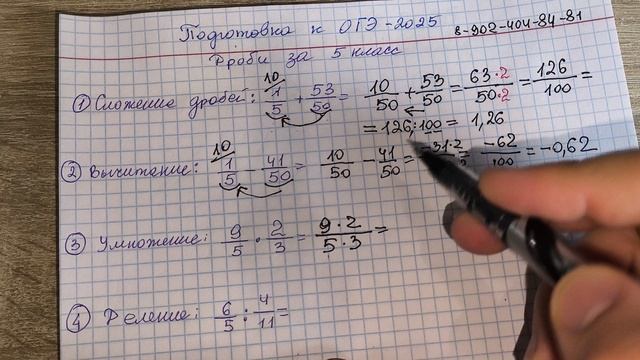 Подготовка к ОГЭ-2025 8-902-404-84-81
Дроби за 5 класс
① Сложение дробей: 10 1/5 + 53/50 = 10/50 + 53/50 = 63·2/50·2 = 126/100 =
= 126:100 = 1,26
② Вычитание: 10 1/5 - 41/50 = 10/50 - 41/50 = -31·2 = -62/100 = -0,62
③ Умножение: 9/5 · 2/3 = 9·2/5·3 =
④ Деление: 6/5 : 4/11 =